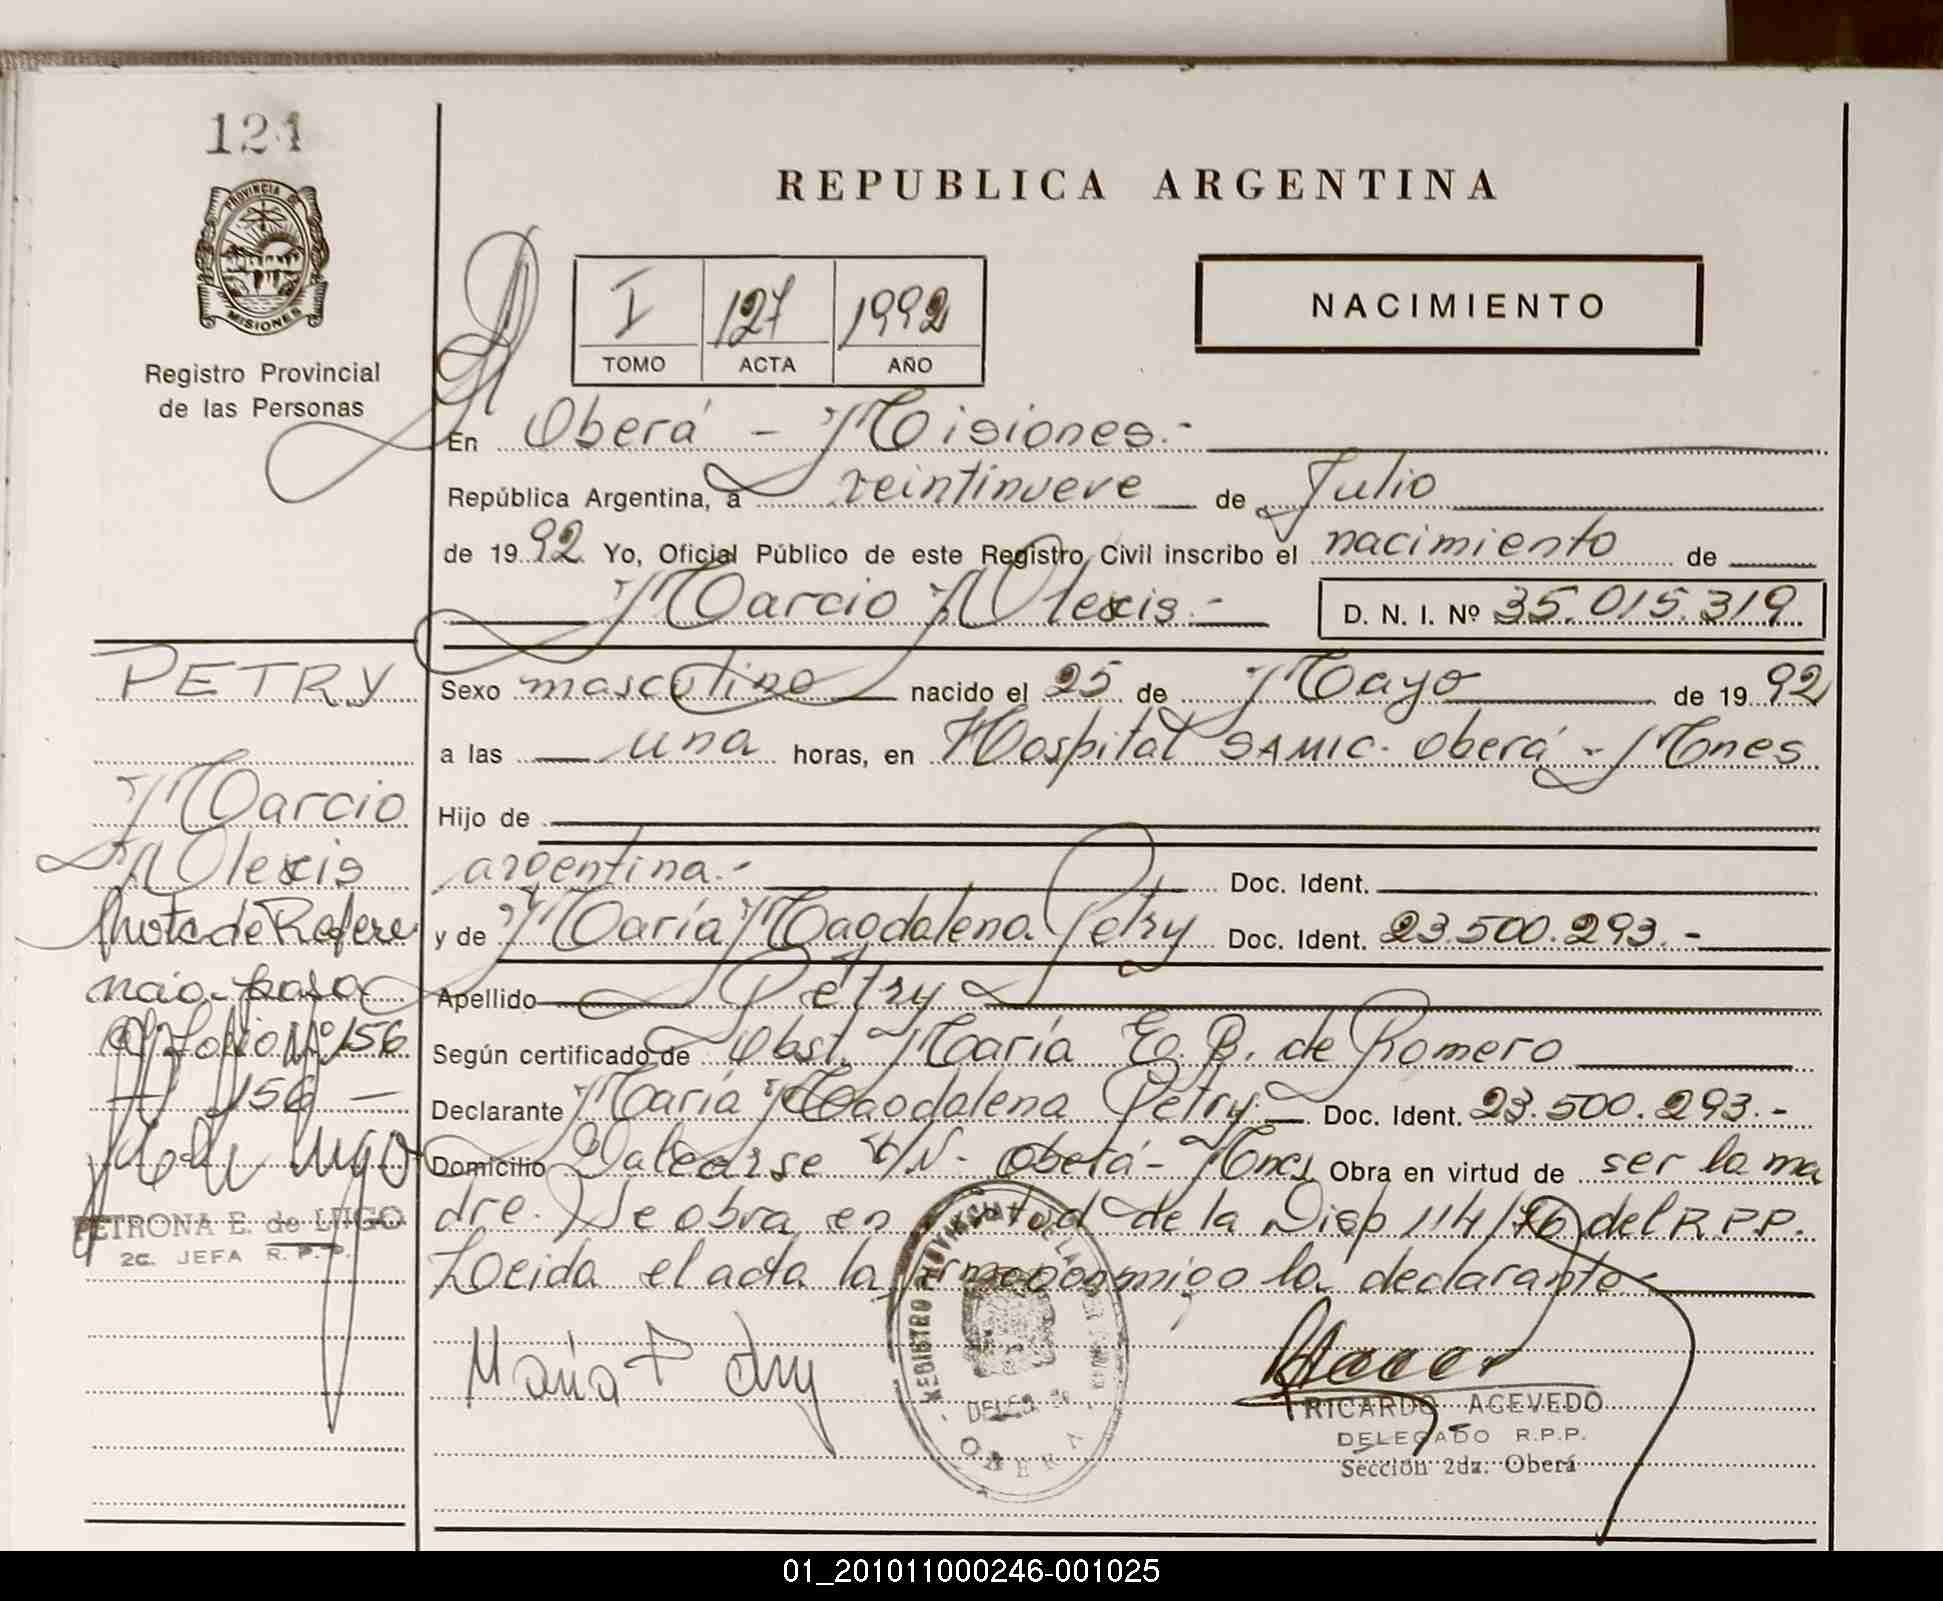 124
PROVINCIA DE
MISIONES
Registro Provincial
de las Personas
REPUBLICA ARGENTINA
I 127 1992
TOMO ACTA AÑO
NACIMIENTO
En Oberá - Misiones.-
República Argentina, a veintinueve de Julio
de 1992 Yo, Oficial Público de este Registro Civil inscribo el nacimiento de
Marcio Alexis.- D. N. I. Nº 35.015.319
Sexo masculino nacido el 25 de Mayo de 1992
a las una horas, en Hospital SAMIC. Oberá - Mnes
Hijo de
argentina.- Doc. Ident.
y de María Magdalena Petry Doc. Ident. 23.500.293.-
Apellido Petry
Según certificado de Obst. María E. B. de Romero
Declarante María Magdalena Petry.- Doc. Ident. 23.500.293.-
Domicilio Balcarse s/N- Oberá- Mnes Obra en virtud de ser la ma
dre. Se obra en virtud de la Disp 114/76 del R.P.P.
Leida el acta la firma conmigo la declarante
María Petry
RICARDO ACEVEDO
DELEGADO R.P.P.
Sección 2da. Oberá
REGISTRO PROVINCIAL DE LAS
DELEG.
OBERA
PETRY
Marcio
Alexis
Nota de Refere
ncia pasa
al Folio Nº 156
156 -
PETRONA E. de LUGO
2a. JEFA R.P.P.
01_201011000246-001025